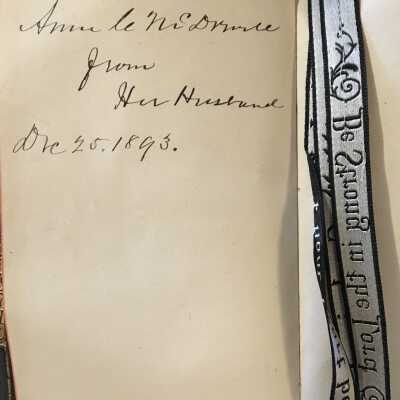 Annie McDowele
from
Her Husband
Dec 25. 1893.
Be Strong in the Lord